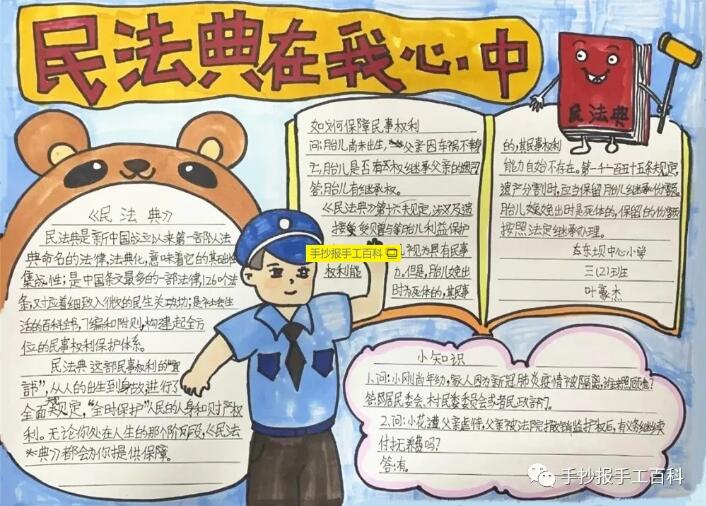 民法典在我心中
民法典
《民法典》
民法典是新中国成立以来第一部以法
典命名的法律,法典化,意味着它的基础性
集成性;是中国条文最多的一部法律,1260个条
条,对应着细致入微的民生关切;是社会生
活的百科全书,7编和附则,构建起全方
位的民事权利保护体系。
民法典 这部民事权利的“宣
言书”,从人的出生到身故进行了
全面规定,“全时保护”人民的人身和财产权
利。无论你处在人生的那个阶段,《民法
典》都会为你提供保障。
如何保障民事权利
问:胎儿尚未出生,父亲因车祸不幸
去,胎儿是否有权继承父亲的遗产
答:胎儿有继承权。
《民法典》第十六条规定,涉及遗
接受赠与等胎儿利益保护
视为具有民事
权利能
力。但是,胎儿娩出
时为死体的,其民事
的,其民事权利
能力自始不存在。第一千一百五十五条规定,
遗产分割时,应当保留胎儿继承份额。
胎儿娩出时是死体的,保留的份额
按照法定继承办理。
东坝中心小学
三(2)班
叶豪杰
手抄报手工百科
小知识
1.问:小刚尚年幼,家人因为新冠肺炎疫情被隔离,谁来照顾他?
答:居民委会、村民委委员会或者民政部门。
2.问:小花遭父亲虐待,父亲被法院撤销监护权后,有义务继续
付抚养费吗?
答:有。
手抄报手工百科